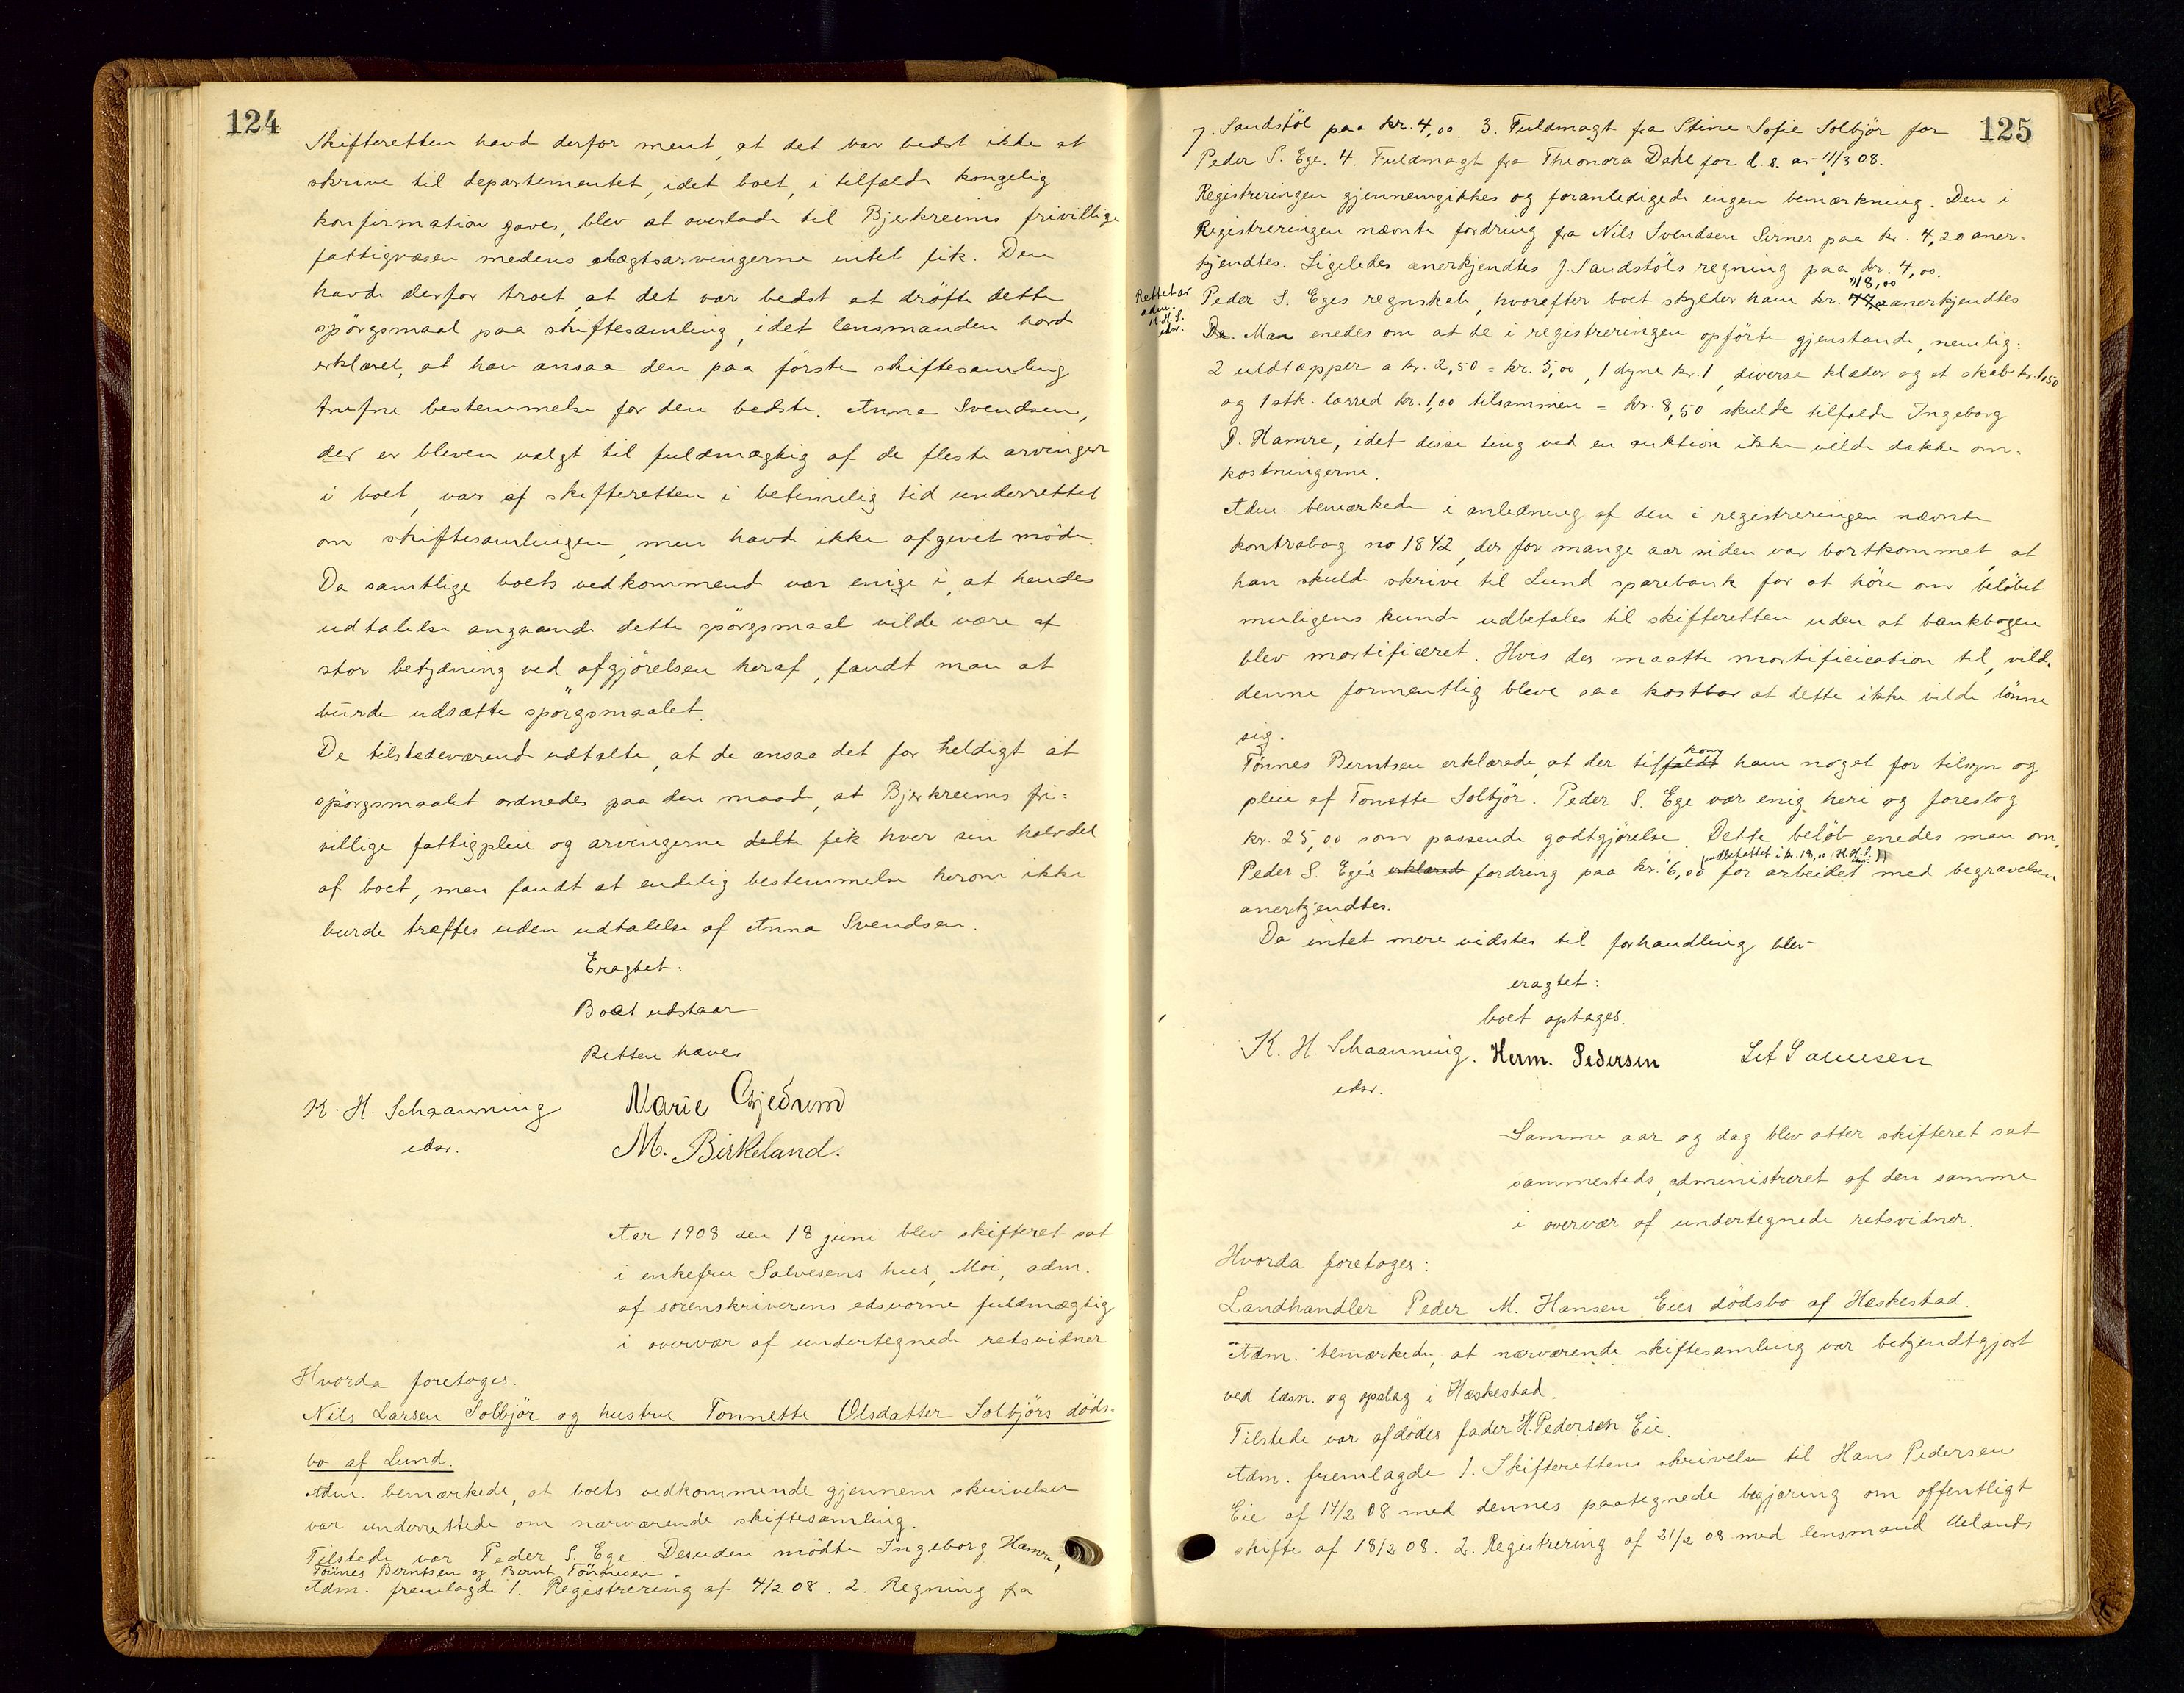 124
Skifteretten havd derfor ment, at det var bedst ikke at
skrive til departementet, idet boet, i tilfælde kongelig
konfirmation gaves, blev at overlade til Bjerkreims frivillige
fattigvæsen medens slægtsarvingerne intet fik. Den
havde derfor troet, at det var bedst at drøfte dette
spörgsmaal paa skiftesamling, idet lensmanden havd
erklæret, at han ansaa den paa förste skiftesamling
trufne bestemmelse for den bedste. Anna Svendsen,
der er bleven valgt til fuldmægtig af de fleste arvinger
i boet, var af skifteretten i betimelig tid underrettet
om skiftesamlingen, men havd ikke afgivet möde.
Da samtlige boets vedkommend var enige i, at hendes
udtalelse angaaende dette spörgsmaal vilde være af
stor betydning ved afgjörelsen heraf, fandt man at
burde udsætte spörgsmaalet.
De tilstedeværend udtalte, at de ansaa det for heldigt at
spörgsmaalet ordnedes paa den maade, at Bjerkreims fri=
villige fattigpleie og arvingerne delte fik hver sin halvdel
af boet, men fandt at endelig bestemmelse herom ikke
burde træffes uden udtalelse af Anna Svendsen.
Eragtet:
Boet udstaar
Retten hæves
K. H. Schaanning Marie Gjedrem
edsv. M. Birkeland.
Aar 1908 den 18 juni blev skifteret sat
i enkefru Salvesens hus, Moi, adm.
af sorenskriverens edsvorne fuldmægtig
i overvær af undertegnede retsvidner
Hvorda foretoges.
Nils Larsen Solbjör og hustru Tonnette Olsdatter Solbjörs döds-
bo af Lund.
Adm. bemærkede, at boets vedkommende gjennem skrivelser
var underrettede om nærværende skiftesamling.
Tilstede var Peder S. Ege. Desuden mödte Ingeborg Hamre,
Tönnes Berntsen og Bernt Tönnesen.
Adm. fremlagde 1. Registrering af 4/2 08. 2. Regning fra
125
J. Sandstöl paa kr. 4,00. 3. Fuldmagt fra Stine Sofie Solbjör for
Peder S. Ege. 4. Fuldmagt fra Theonora Dahl for d. s. av 11/3 08.
Registreringen gjennemgikkes og foranledigede ingen bemærkning. Den i
Registreringen nævnte fordring fra Nils Svendsen Sirnes paa kr. 4,20 aner-
kjendtes. Ligeledes anerkjendtes J. Sandstöls regning paa kr. 4,00.
18,00
Rettet av
adm.
K.H.S.
edsv.
Peder S. Eges regnskab, hvorefter boet skylder ham kr. anerkjendtes
De. Man enedes om at de i registreringen opförte gjenstande, nemlig:
2 uldtæpper a kr. 2,50 = kr. 5,00, 1 dyne kr. 1, diverse klæder og et skab kr. 1,50
og 1 stk. lærred kr. 1,00 tilsammen = kr. 8,50 skulde tilfalde Ingeborg
P. Hamre, idet disse ting ved en auktion ikke vilde dække om-
kostningerne.
Adm. bemærkede i anledning af den i registreringen nævnte
kontrabog no 1842, der for mange aar siden var bortkommet, at
han skulde skrive til Lund sparebank for at höre om belöbet
muligens kunde udbetales til skifteretten uden at bankbogen
blev mortificeret. Hvis der maatte mortificication til, vilde
denne formentlig blive saa kostbar at dette ikke vilde lönne
sig.
kom
Tönnes Berntsen erklærede, at der tilfaldt ham noget for tilsyn og
pleie af Tonette Solbjör. Peder S. Ege var enig heri og foreslog
kr. 25,00 som passende godtgjörelse. Dette belöb enedes man om.
(indbefattet i kr. 18,00 K.H.S. edsv.)
Peder S. Ege's erklærede fordring paa kr. 6,00 for arbeidet med begravelsen
anerkjendtes.
Da intet mere vidstes til forhandling blev
eragtet:
boet optages.
K. H. Schaanning. Herm. Pedersen
edsv.
Samme aar og dag blev atter skifteret sat
sammesteds, administreret af den samme
i overvær af undertegnede retsvidner.
Hvorda foretoges:
Landhandler Peder M. Hansen Eies dödsbo af Heskestad.
Adm. bemærkede, at nærværende skiftesamling var bekjendtgjort
ved læsn. og opslag i Heskestad.
Tilstede var afdödes fader H. Pedersen Eie.
Adm. fremlagde 1. Skifterettens skrivelse til Hans Pedersen
Eie af 14/2 08 med dennes paategnede begjæring om offentligt
skifte af 18/2 08. 2. Registrering af 21/2 08 med lensmand Uelands